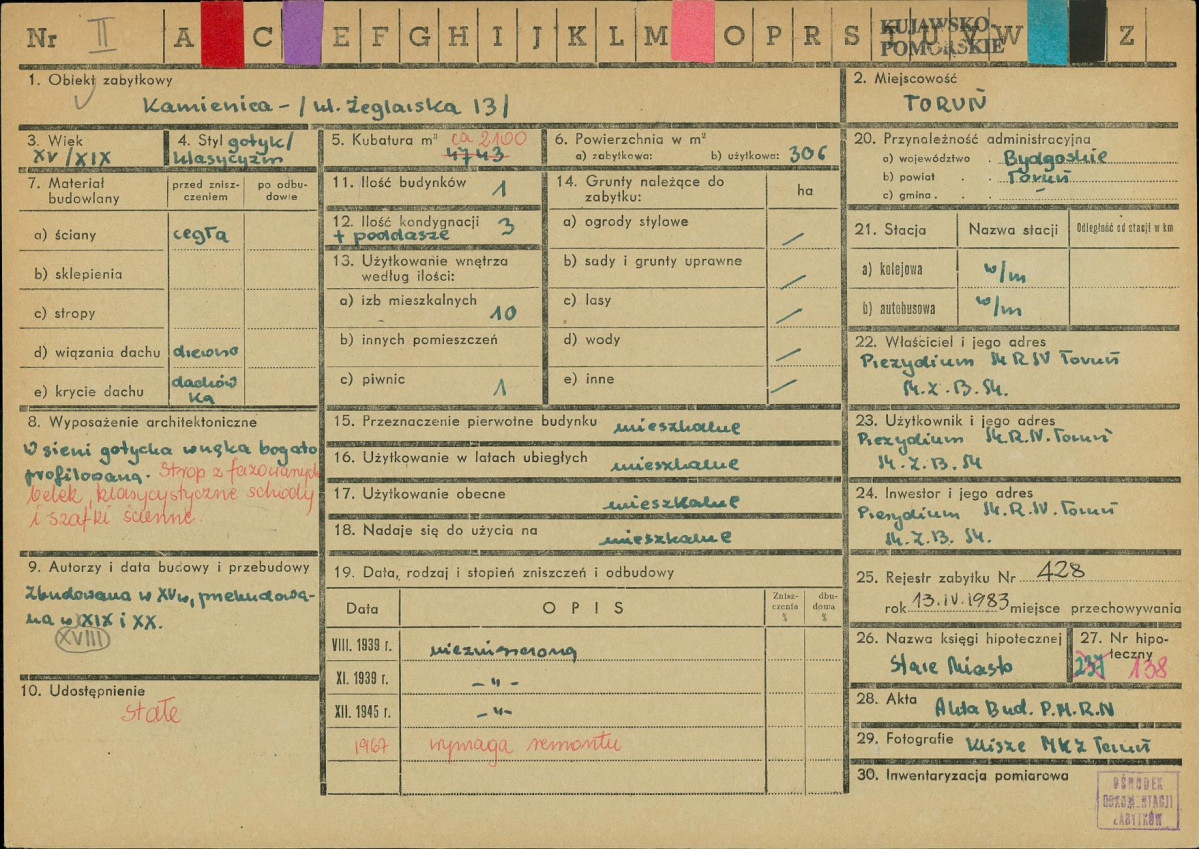 Nr II A C E F G H I J K L M O P R S T U V W Z
KUJAWSKO-
POMORSKIE
1. Obiekt zabytkowy
Kamienica - / ul. Żeglarska 13/
2. Miejscowość
TORUŃ
3. Wiek
XV/XIX
4. Styl gotyk/
klasycyzm
5. Kubatura m³ ca 2100
4743
6. Powierzchnia w m²
a) zabytkowa: b) użytkowa: 306
7. Materiał budowlany
przed znisz-
czeniem
po odbu-
dowie
a) ściany cegła
b) sklepienia
c) stropy
d) wiązania dachu drewno
e) krycie dachu dachów
ka
8. Wyposażenie architektoniczne
W sieni gotycka wnęka bogato
profilowana. Strop z fazowanych
belek, klasycystyczne schody
i szafki ścienne.
9. Autorzy i data budowy i przebudowy
Zbudowana w XV w, przebudowa-
na w XIX i XX.
XVIII
10. Udostępnienie
stałe
11. Ilość budynków 1
12. Ilość kondygnacji 3
+ poddasze
13. Użytkowanie wnętrza
według ilości:
a) izb mieszkalnych
10
b) innych pomieszczeń
c) piwnic 1
14. Grunty należące do
zabytku:
ha
a) ogrody stylowe
b) sady i grunty uprawne
c) lasy
d) wody
e) inne
15. Przeznaczenie pierwotne budynku mieszkalne
16. Użytkowanie w latach ubiegłych mieszkalne
17. Użytkowanie obecne mieszkalne
18. Nadaje się do użycia na mieszkalne
19. Data, rodzaj i stopień zniszczeń i odbudowy
Data OPIS
Znisz-
czenia
%
dbu-
dowa
%
VIII. 1939 r. niezniszczona
XI. 1939 r. -"-
XII. 1945 r. -"-
1967 wymaga remontu
20. Przynależność administracyjna
a) województwo . Bydgoskie
b) powiat . . Toruń
c) gmina . . -
21. Stacja Nazwa stacji Odległość od stacji w km
a) kolejowa w/m
b) autobusowa w/m
22. Właściciel i jego adres
Prezydium M.R.N Toruń
M.Z.B.M.
23. Użytkownik i jego adres
Prezydium M.R.N. Toruń
M.Z.B.M
24. Inwestor i jego adres
Prezydium M.R.N. Toruń
M.Z.B.M.
25. Rejestr zabytku Nr 428
rok 13.IV.1983 miejsce przechowywania
26. Nazwa księgi hipotecznej
Stare Miasto
27. Nr hipo-
teczny
237 138
28. Akta Akta Bud. P.M.R.N
29. Fotografie Klisze MKZ Toruń
30. Inwentaryzacja pomiarowa
OŚRODEK
DOKUMENTACJI
ZABYTKÓW